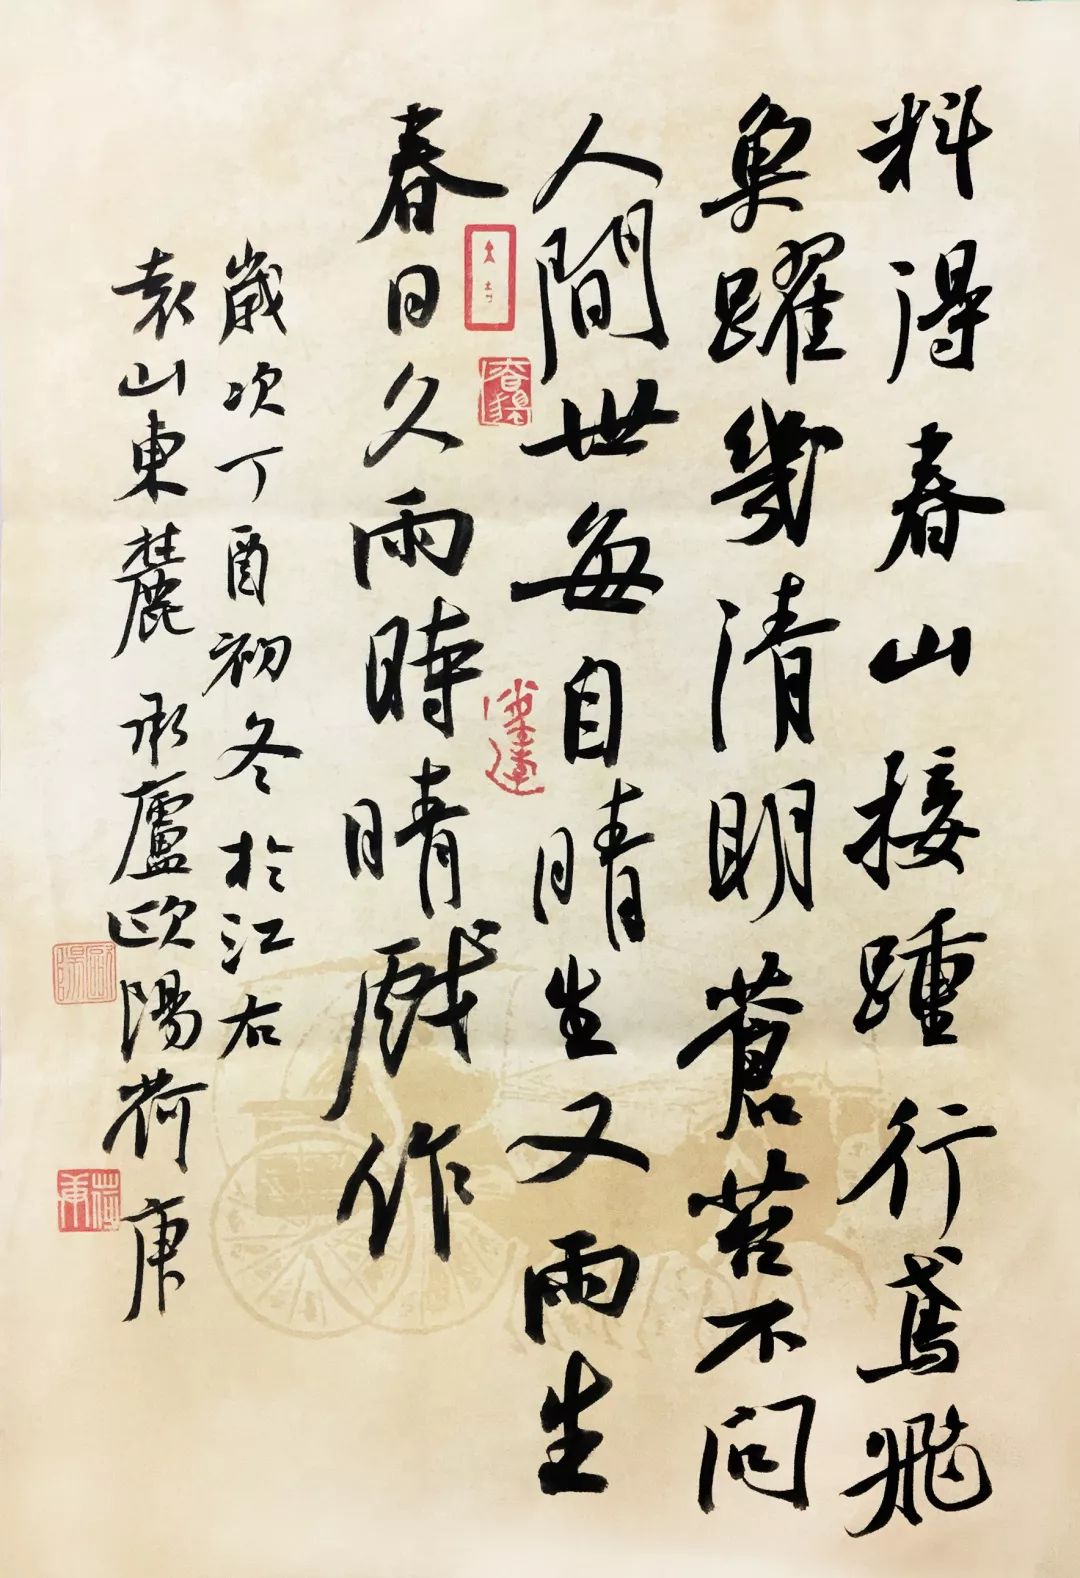 料得春山接踵行鳶飛
魚躍幾清明蒼苔不問
人間世每自晴生又雨生
春日久雨時晴戲作
歲次丁酉初冬於江右
袁山東麓承廬歐陽荷庚
歐陽
荷庚